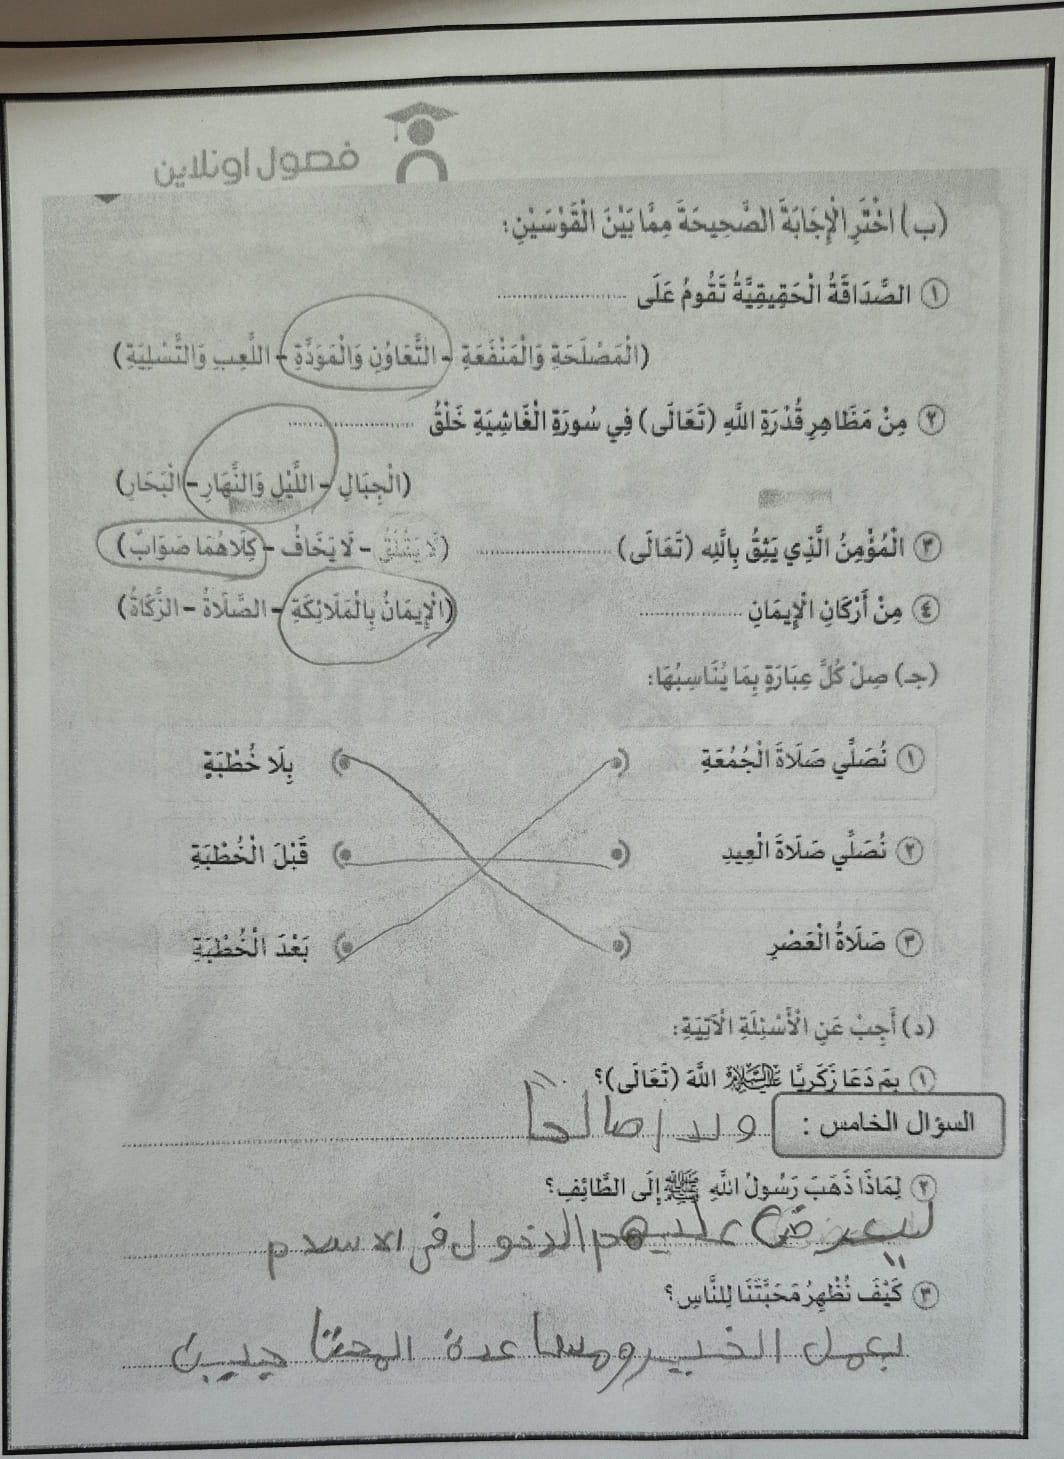 فصول اونلاين
(ب) اخْتَرِ الْإِجَابَةَ الصَّحِيحَةَ مِمَّا بَيْنَ الْقَوْسَيْنِ:
١ الصَّدَاقَةُ الْحَقِيقِيَّةُ تَقُومُ عَلَى ..................
(الْمَصْلَحَةِ وَالْمَنْفَعَةِ - التَّعَاوُنِ وَالْمَوَدَّةِ - اللَّعِبِ وَالتَّسْلِيَةِ)
٢ مِنْ مَظَاهِرِ قُدْرَةِ اللَّهِ (تَعَالَى) فِي سُورَةِ الْغَاشِيَةِ خَلْقُ ..................
(الْجِبَالِ - اللَّيْلِ وَالنَّهَارِ - الْبَحَارِ)
٣ الْمُؤْمِنُ الَّذِي يَثِقُ بِاللَّهِ (تَعَالَى) .................. (لَا يَقْلَقُ - لَا يَخَافُ - كِلَاهُمَا صَوَابٌ)
٤ مِنْ أَرْكَانِ الْإِيمَانِ .................. (الْإِيمَانُ بِالْمَلَائِكَةِ - الصَّلَاةُ - الزَّكَاةُ)
(جـ) صِلْ كُلَّ عِبَارَةٍ بِمَا يُنَاسِبُهَا:
١ نُصَلِّي صَلَاةَ الْجُمُعَةِ بِلَا خُطْبَةٍ
٢ نُصَلِّي صَلَاةَ الْعِيدِ قَبْلَ الْخُطْبَةِ
٣ صَلَاةُ الْعَصْرِ بَعْدَ الْخُطْبَةِ
(د) أَجِبْ عَنِ الْأَسْئِلَةِ الْآتِيَةِ:
١ بِمَ دَعَا زَكَرِيَّا عَلَيْهِ السَّلَامُ اللَّهَ (تَعَالَى)؟
السؤال الخامس : ولدا صالحاً
٢ لِمَاذَا ذَهَبَ رَسُولُ اللَّهِ ﷺ إِلَى الطَّائِفِ؟
ليعرض عليهم الدخول فى الاسلام
٣ كَيْفَ نُظْهِرُ مَحَبَّتَنَا لِلنَّاسِ؟
بعمل الخير ومساعدة المحتاجين